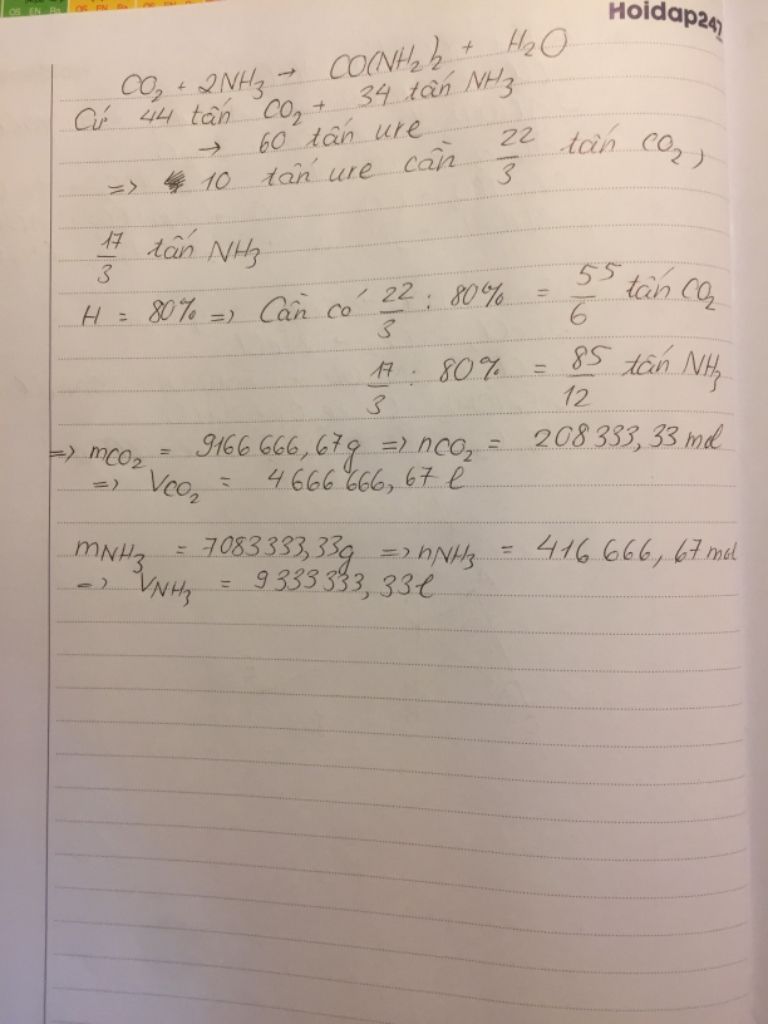 OS EN Ba OS EN Ba OS EN Ba
Hoidap247
CO₂ + 2NH₃ → CO(NH₂)₂ + H₂O
Cứ 44 tấn CO₂ + 34 tấn NH₃
→ 60 tấn ure
=> 10 tấn ure cần 22/3 tấn CO₂,
17/3 tấn NH₃
H = 80% => Cần có 22/3 : 80% = 55/6 tấn CO₂
17/3 : 80% = 85/12 tấn NH₃
=> mCO₂ = 9166 666,67g => nCO₂ = 208 333,33 mol
=> VCO₂ = 4 666 666,67 l
mNH₃ = 7083333,33g => nNH₃ = 416 666,67 mol
=> VNH₃ = 9 333 333,33 l